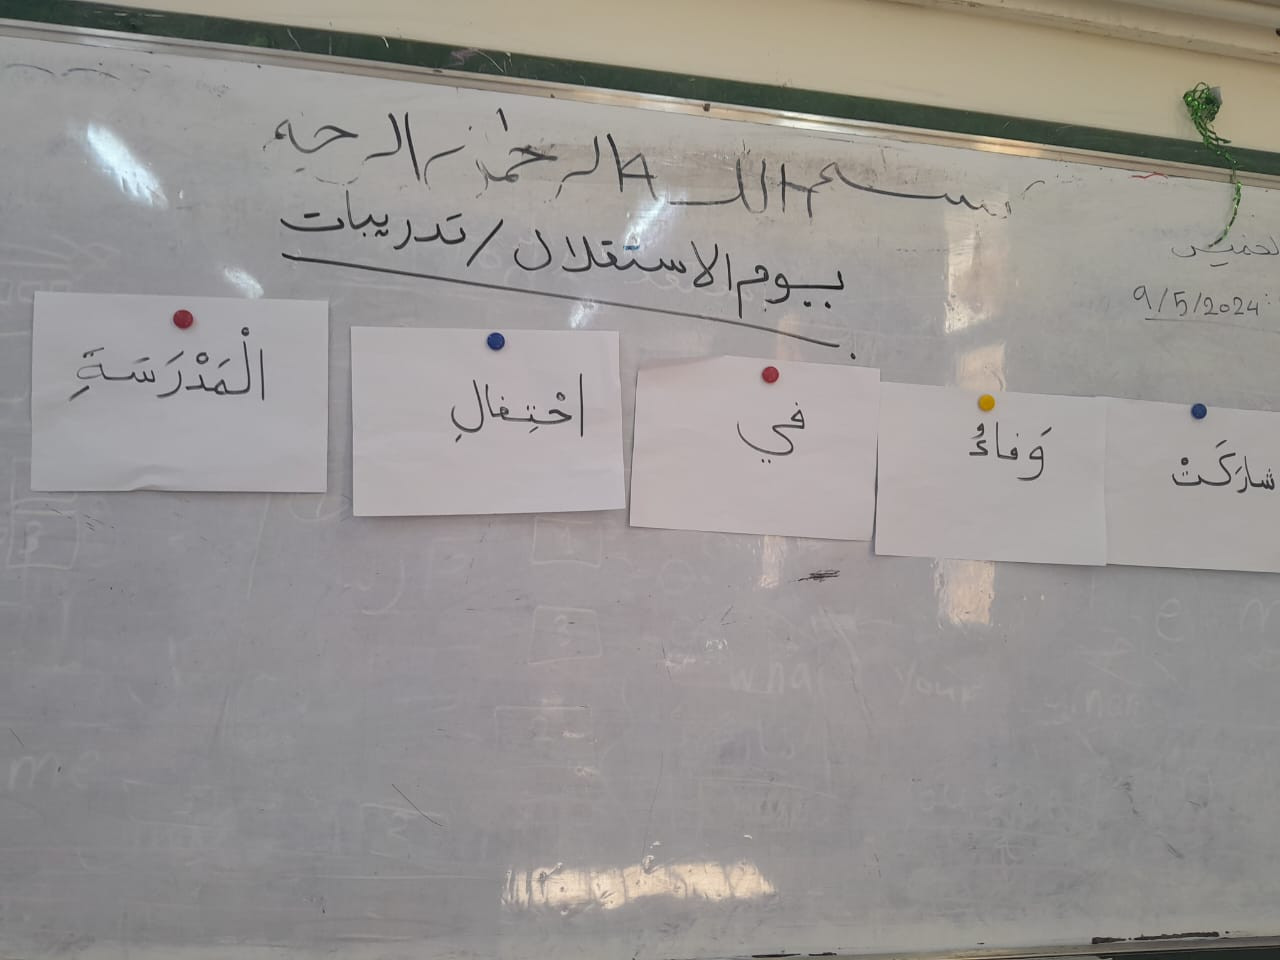 بسم الله الرحمٰن الرحيم
الخميس
9/5/2024
يوم الاستقلال / تدريبات
شارَكَتْ وَفاءُ في احْتِفالِ الْمَدْرَسَةِ
what your
me